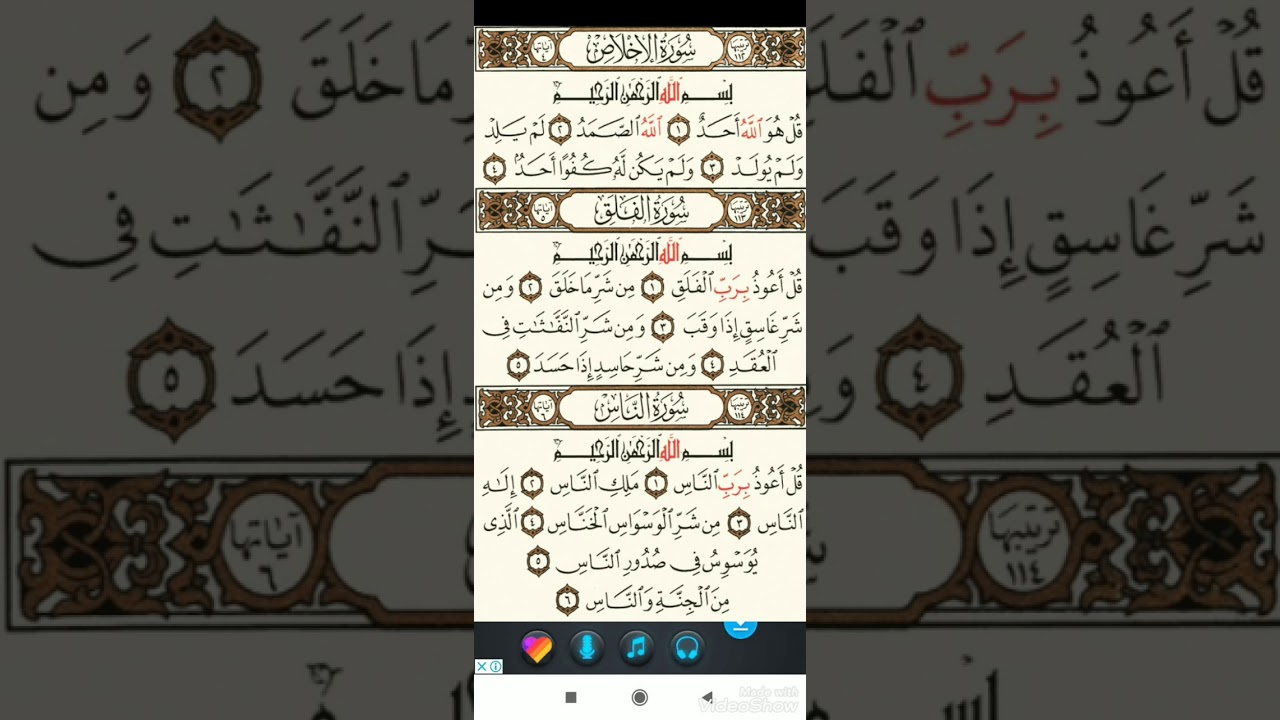 ترتيبها ١١٢ سُورَةُ الإِخْلَاصِ آياتها ٤
بِسْمِ ٱللَّهِ ٱلرَّحْمَٰنِ ٱلرَّحِيمِ
قُلْ هُوَ ٱللَّهُ أَحَدٌ ١ ٱللَّهُ ٱلصَّمَدُ ٢ لَمْ يَلِدْ
وَلَمْ يُولَدْ ٣ وَلَمْ يَكُن لَّهُۥ كُفُوًا أَحَدٌۢ ٤
ترتيبها ١١٣ سُورَةُ الفَلَقِ آياتها ٥
بِسْمِ ٱللَّهِ ٱلرَّحْمَٰنِ ٱلرَّحِيمِ
قُلْ أَعُوذُ بِرَبِّ ٱلْفَلَقِ ١ مِن شَرِّ مَا خَلَقَ ٢ وَمِن
شَرِّ غَاسِقٍ إِذَا وَقَبَ ٣ وَمِن شَرِّ ٱلنَّفَّٰثَٰتِ فِى
ٱلْعُقَدِ ٤ وَمِن شَرِّ حَاسِدٍ إِذَا حَسَدَ ٥
ترتيبها ١١٤ سُورَةُ النَّاسِ آياتها ٦
بِسْمِ ٱللَّهِ ٱلرَّحْمَٰنِ ٱلرَّحِيمِ
قُلْ أَعُوذُ بِرَبِّ ٱلنَّاسِ ١ مَلِكِ ٱلنَّاسِ ٢ إِلَٰهِ
ٱلنَّاسِ ٣ مِن شَرِّ ٱلْوَسْوَاسِ ٱلْخَنَّاسِ ٤ ٱلَّذِى
يُوَسْوِسُ فِى صُدُورِ ٱلنَّاسِ ٥
مِنَ ٱلْجِنَّةِ وَٱلنَّاسِ ٦
Made with
VideoShow